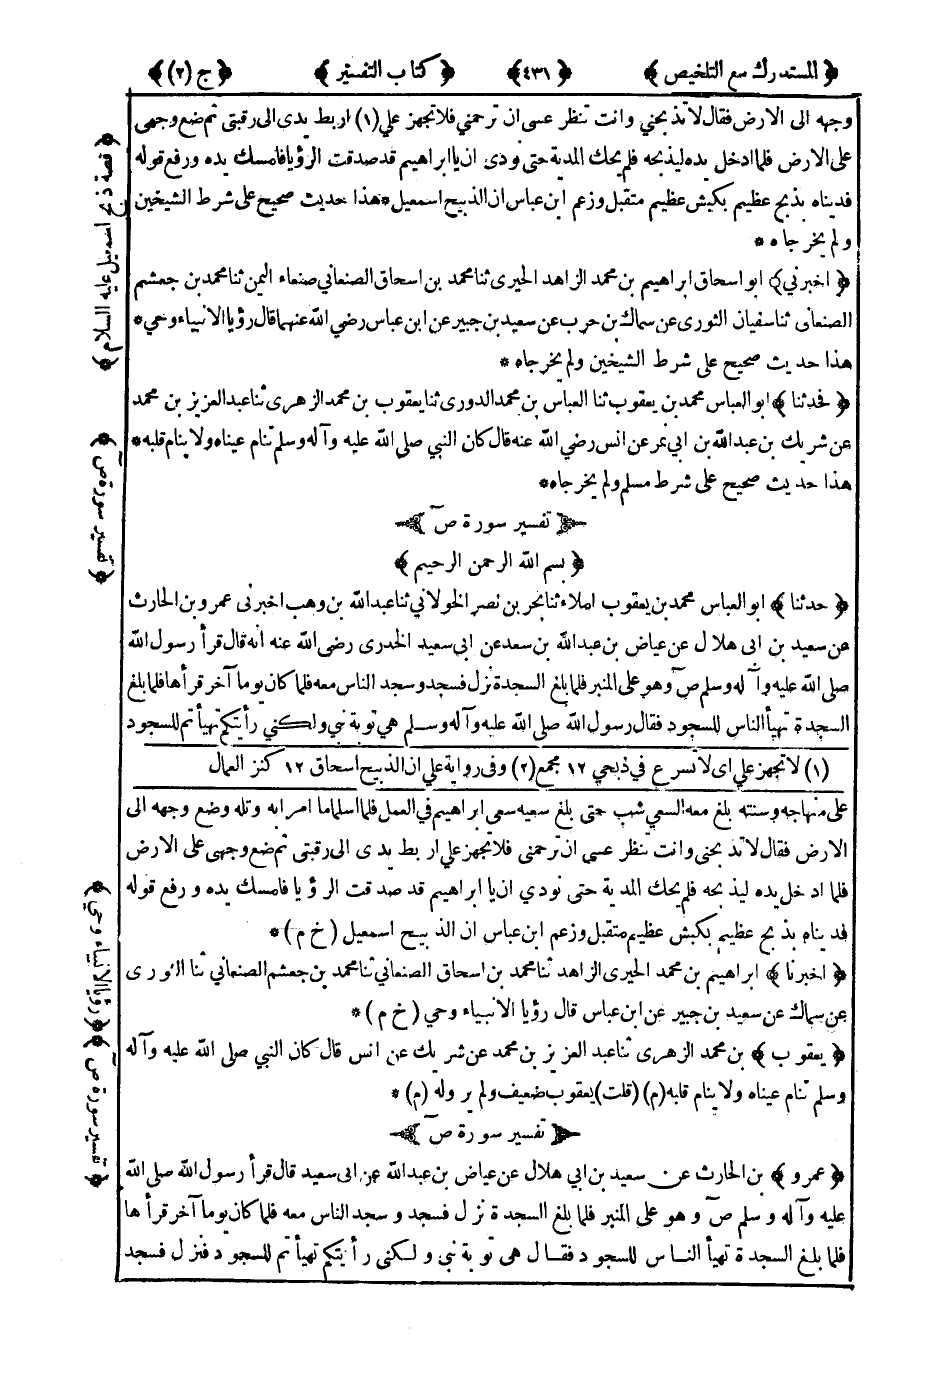 ﴿ المستدرك مع التلخيص ﴾ ﴿ ٤٣١ ﴾ ﴿ كتاب التفسير ﴾ ﴿ ج (٢) ﴾
وجهه الى الارض فقال لا تذبحني وانت تنظر عسى ان ترحمني فلا تجهز علي (١) اربط يدى الى رقبتي ثم ضع وجهى
على الارض فلما ادخل يده ليذبحه فلم يحك المدية حتى نودى ان يا ابراهيم قد صدقت الرؤيا فامسك يده ورفع قوله
فديناه بذبح عظيم بكبش عظيم متقبل وزعم ابن عباس ان الذبيح اسمعيل * هذا حديث صحيح على شرط الشيخين
ولم يخرجاه *
﴿ اخبرني ﴾ ابو اسحاق ابراهيم بن محمد الزاهد الحيرى ثنا محمد بن اسحاق الصنعاني صنعاء اليمن ثنا محمد بن جعشم
الصنعانى ثنا سفيان الثورى عن سماك بن حرب عن سعيد بن جبير عن ابن عباس رضي الله عنهما قال رؤيا الانبياء وحي *
هذا حديث صحيح على شرط الشيخين ولم يخرجاه *
﴿ فحدثنا ﴾ ابو العباس محمد بن يعقوب ثنا العباس بن محمد الدورى ثنا يعقوب بن محمد الزهرى ثنا عبد العزيز بن محمد
عن شريك بن عبد الله بن ابي نمر عن انس رضي الله عنه قال كان النبي صلى الله عليه وآله وسلم تنام عيناه ولا ينام قلبه *
هذا حديث صحيح على شرط مسلم ولم يخرجاه *
﴿ تفسير سورة ص ﴾
﴿ بسم الله الرحمن الرحيم ﴾
﴿ حدثنا ﴾ ابو العباس محمد بن يعقوب املاء ثنا بحر بن نصر الخولاني ثنا عبد الله بن وهب اخبرنى عمرو بن الحارث
عن سعيد بن ابى هلال عن عياض بن عبد الله بن سعد عن ابي سعيد الخدرى رضى الله عنه انه قال قرأ رسول الله
صلى الله عليه وآله وسلم ص وهو على المنبر فلما بلغ السجدة نزل فسجد وسجد الناس معه فلما كان يوما آخر قرأها فلما بلغ
السجدة تهيأ الناس للسجود فقال رسول الله صلى الله عليه وآله وسلم هي توبة نبي ولكني رأيتكم تهيأتم للسجود
(١) لا تجهز علي اى لا تسرع في ذبحي ١٢ مجمع (٢) وفى رواية علي ان الذبيح اسحاق ١٢ كنز العمال
على منهاجه وسنته بلغ معه السعي شب حتى بلغ سعيه سعى ابراهيم في العمل فلما اسلما ما امرا به وتله وضع وجهه الى
الارض فقال لا تذبحنى وانت تنظر عسى ان ترحمنى فلا تجهز علي اربط يدى الى رقبتي ثم ضع وجهى على الارض
فلما ادخل يده ليذبحه فلم يحك المدية حتى نودي ان يا ابراهيم قد صدقت الرؤيا فامسك يده ورفع قوله
فديناه بذبح عظيم بكبش عظيم متقبل وزعم ابن عباس ان الذبيح اسمعيل (خ م) *
﴿ اخبرنا ﴾ ابراهيم بن محمد الحيرى الزاهد ثنا محمد بن اسحاق الصنعاني ثنا محمد بن جعشم الصنعاني ثنا الثورى
عن سماك عن سعيد بن جبير عن ابن عباس قال رؤيا الانبياء وحي (خ م) *
﴿ يعقوب ﴾ بن محمد الزهرى ثنا عبد العزيز بن محمد عن شريك عن انس قال كان النبي صلى الله عليه وآله
وسلم تنام عيناه ولا ينام قلبه (م) (قلت) يعقوب ضعيف ولم يروله (م) *
﴿ تفسير سورة ص ﴾
﴿ عمرو ﴾ بن الحارث عن سعيد بن ابي هلال عن عياض بن عبد الله عن ابى سعيد قال قرأ رسول الله صلى الله
عليه وآله وسلم ص وهو على المنبر فلما بلغ السجدة نزل فسجد وسجد الناس معه فلما كان يوما آخر قرأها
فلما بلغ السجدة تهيأ الناس للسجود فقال هى توبة نبي ولكنى رأيتكم تهيأتم للسجود فنزل فسجد
﴿ قصة ذبح اسمعيل عليه السلام ﴾
﴿ تفسير سورة ص ﴾
﴿ رؤيا الانبياء وحي ﴾
﴿ تفسير سورة ص ﴾